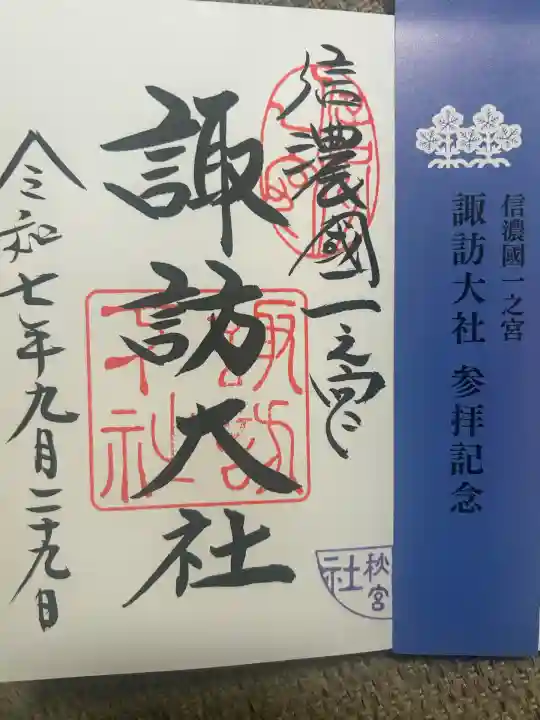 信濃國一之宮
諏訪大社
令和七年九月二十九日
諏訪
大社
秋宮
社
信濃國一之宮
諏訪大社 参拝記念